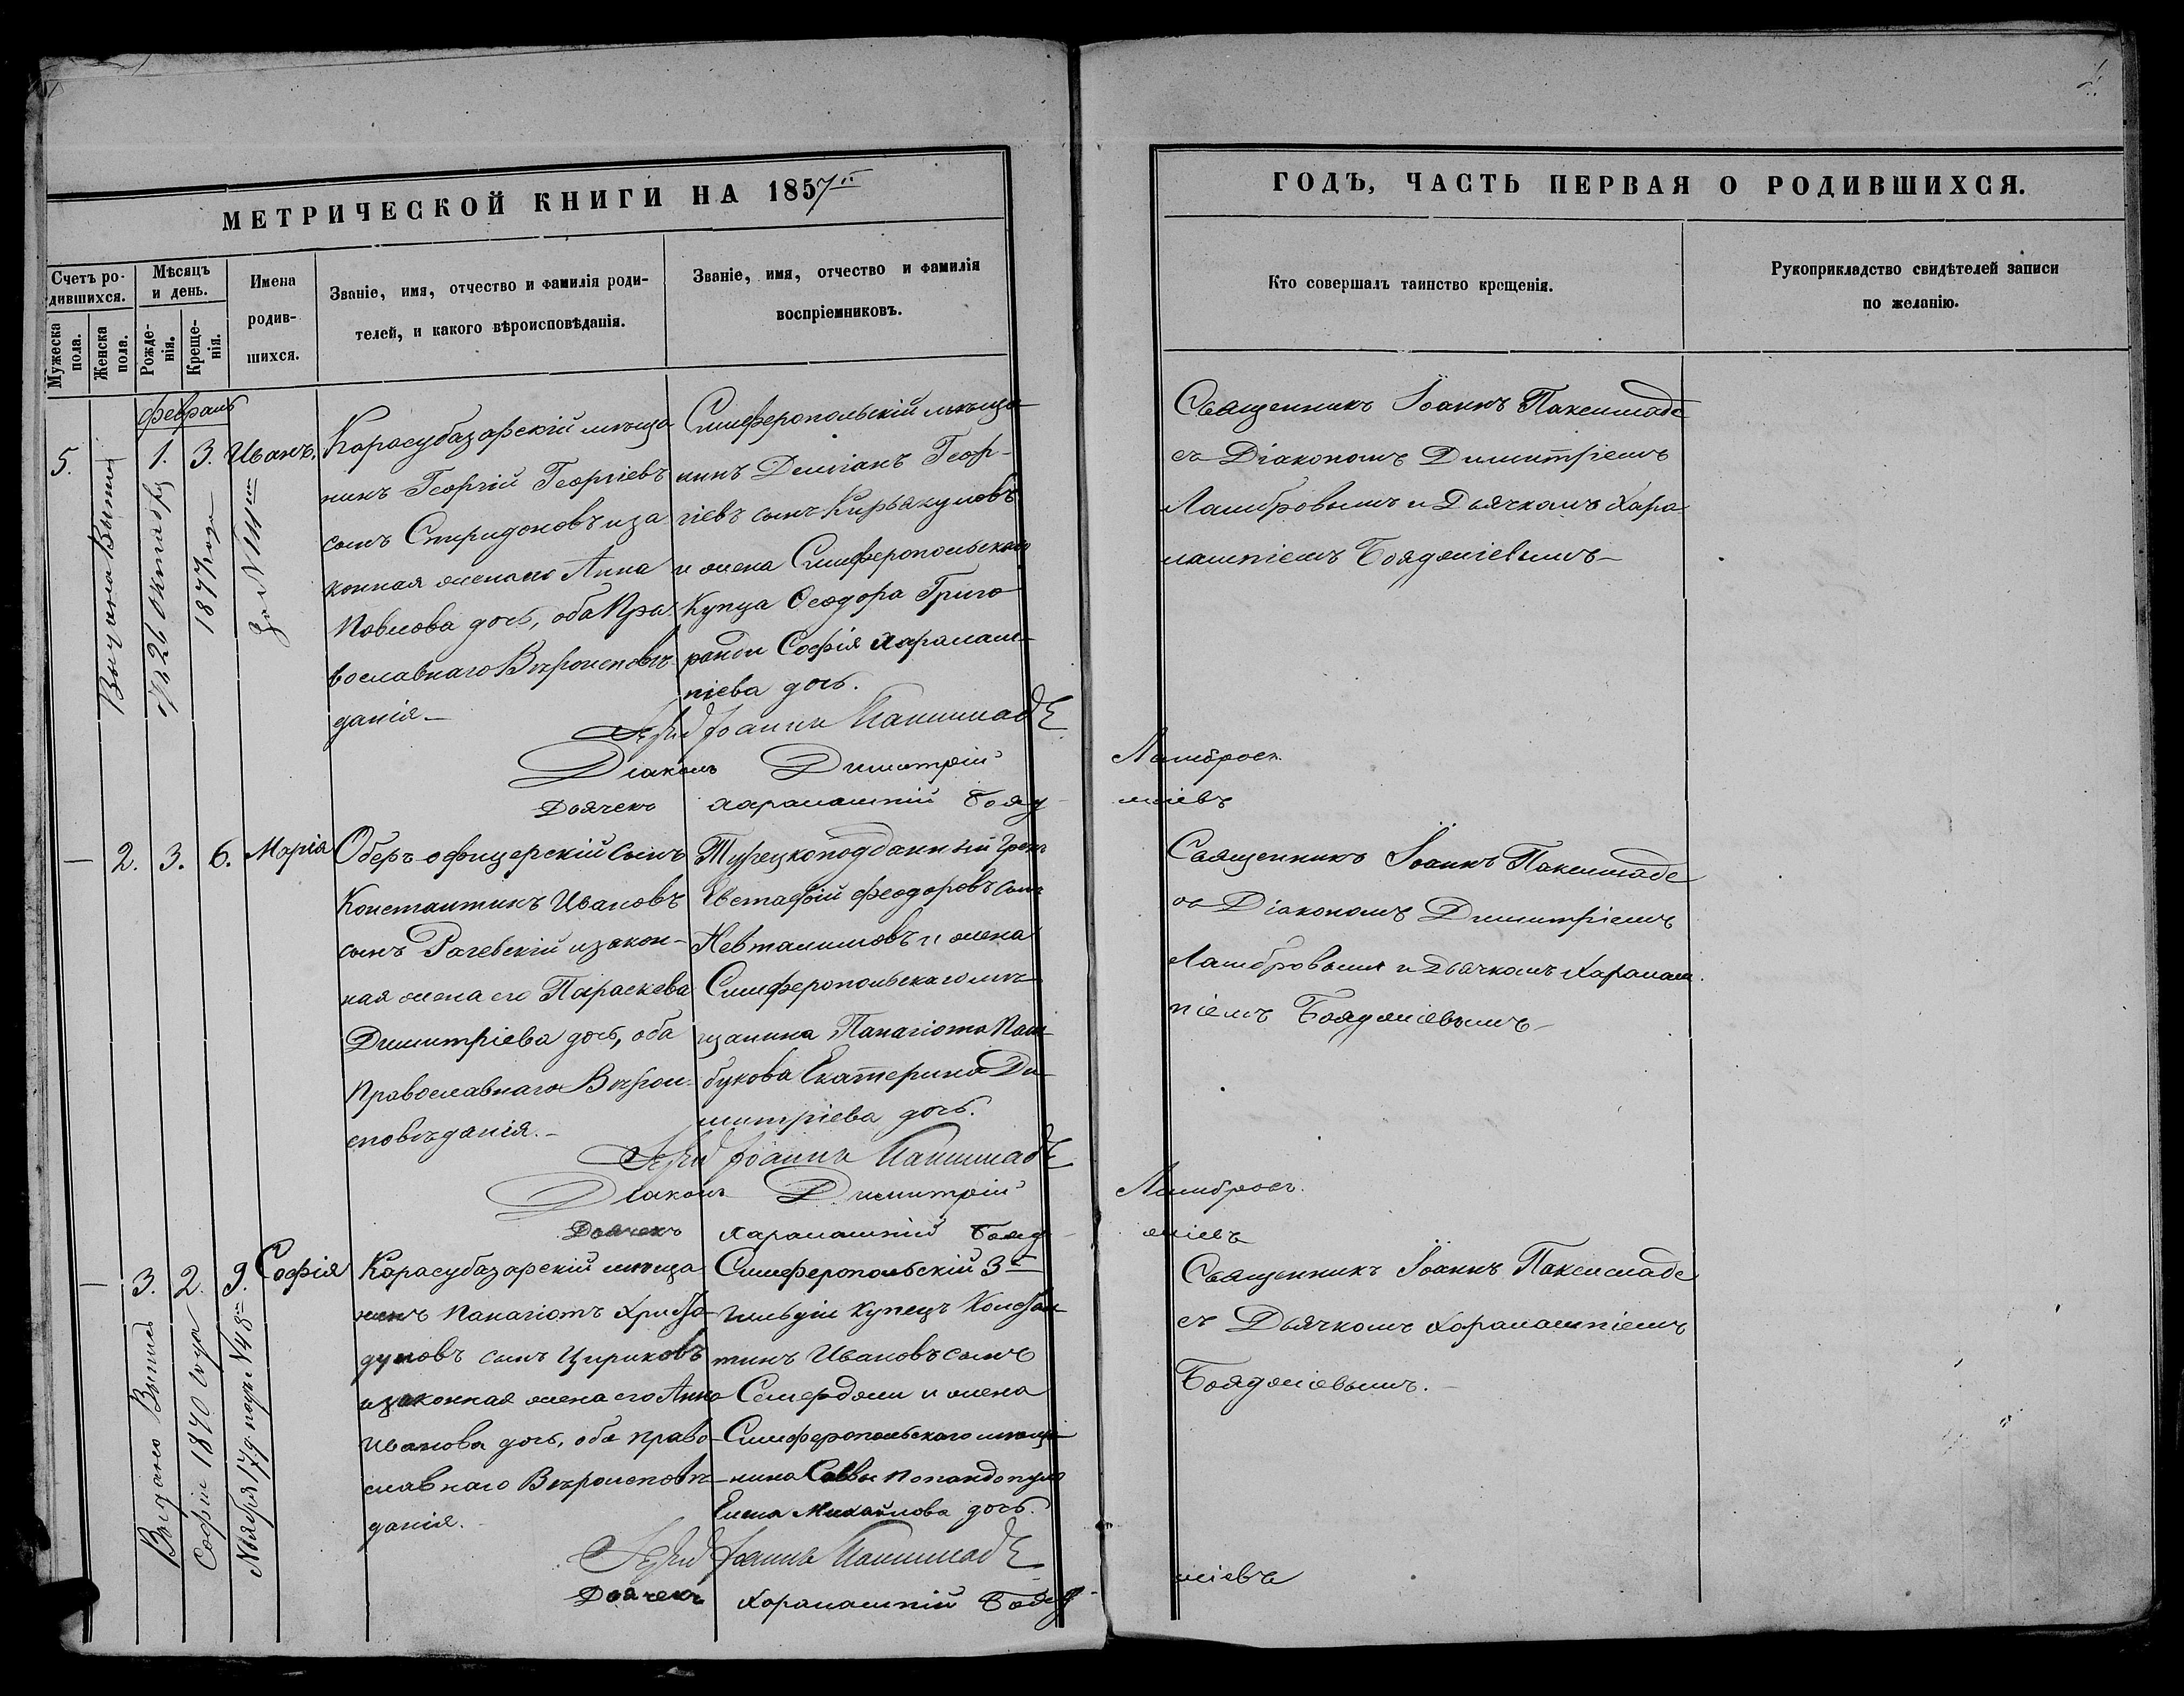 МЕТРИЧЕСКОЙ КНИГИ НА 1857й
Счетъ ро-
дившихся.
Мужеска пола.
Женска пола.
Мѣсяцъ
и день.
Рожде-
нія.
Креще-
нія.
Имена
родив-
шихся.
Званіе, имя, отчество и фамилія роди-
телей, и какого вѣроисповѣданія.
Званіе, имя, отчество и фамилія
воспріемниковъ.
февраль
5. — 1. 3. Иванъ.
Выдана Выпись
26 Октября
1877 года
за N 111мъ
Карасубазарскій мѣща
нинъ Георгій Георгіевъ
сынъ Спиридоновъ и за
конная жена его Анна
Павлова дочь, оба Пра
вославнаго Вѣроисповѣ-
данія.—
Симферопольскій мѣща-
нинъ Деміанъ Геор-
гіевъ сынъ Кирьякуловъ
и жена Симферопольскаго
Купца Ѳеодора Григо
ранди Софія Харалам-
піева дочь.
Іерей Іоаннъ Паксимаде
Діаконъ Димитрій
Дьячекъ Харалампій Бояд-
— 2. 3. 6. Марія
Оберъ-офицерскій сынъ
Константинъ Ивановъ
сынъ Рагевскій и закон-
ная жена его Параскева
Димитріева дочь, оба
Православнаго Вѣрои-
сповѣданія.—
Турецкоподданный Грекъ
Евстафій Феодоровъ сынъ
Невталимовъ и жена
Симферопольскаго мѣ-
щанина Панагіота Пам-
букова Екатерина Ди-
митріева дочь.
Іерей Іоаннъ Паксимаде
Діаконъ Димитрій
Дьячекъ Харалампій Бояд-
— 3. 2. 9. Софія
Выдано Выпись
Софіи 1870 года
Ноября 17 д. подъ N 48мъ
Карасубазарскій мѣща
нинъ Панагіотъ Христо-
дуловъ сынъ Цириковъ
и законная жена его Анна
Иванова дочь, оба право-
славнаго Вѣроисповѣ-
данія.—
Симферопольскій 3й
гильдіи купецъ Констан-
тинъ Ивановъ сынъ
и жена
Симферопольскаго мѣща-
нина Саввы Попандопуло
Елена Михайлова дочь.
Іерей Іоаннъ Паксимаде
Дьячекъ Харалампій Бояд-
ГОДЪ, ЧАСТЬ ПЕРВАЯ О РОДИВШИХСЯ.
Кто совершалъ таинство крещенія.
Рукоприкладство свидѣтелей записи
по желанію.
Священникъ Іоаннъ Паксимаде
съ Діакономъ Димитріемъ
Ламбровымъ и Дьячкомъ Хара
лампіемъ Бояджіевымъ—
Ламбровъ.
жіевъ
Священникъ Іоаннъ Паксимаде
съ Діакономъ Димитріемъ
Ламбровымъ и Дьячкомъ Харалам
піемъ Бояджіевымъ—
Ламбровъ.
жіевъ
Священникъ Іоаннъ Паксимаде
съ Дьячкомъ Харалампіемъ
Бояджіевымъ.—
жіевъ